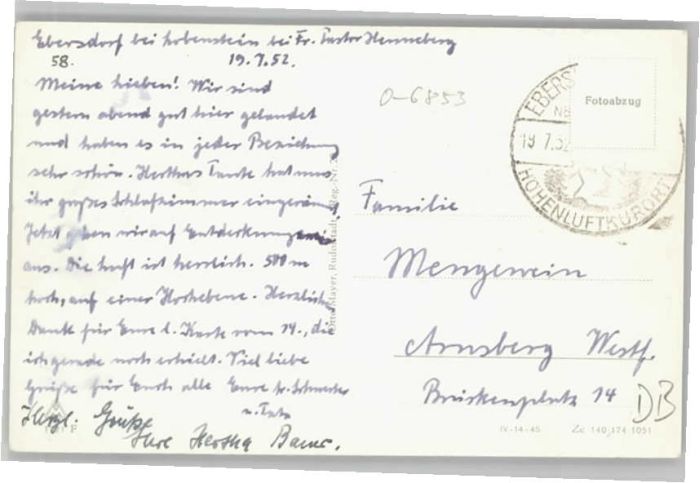 Ebersdorf bei Lobenstein bei Fr. Pastor Henneberg
58. 19.7.52.
Meine Lieben! Wir sind
gestern abend gut hier gelandet
und haben es in jeder Beziehung
sehr schön. Herthas Tante hat uns
ihr großes Schlafzimmer eingeräumt
Jetzt gehen wir auf
aus. Die Luft ist herrlich. 500 m
hoch, auf einer Hochebene. Herzlichen
Dank für Eure l. Karte vom 14., die
ich gerade noch erhielt. Viel liebe
Grüße für Euch alle Eure tr. Schwester
u. Tante
Herzl. Grüße
Ihre Hertha
O-6853
Fotoabzug
EBERS
19 7.52
HÖHENLUFTKURORT
Familie
Mengewein
Arnsberg Westf.
Brückenplatz 14
DB
IV-14-45 Zc 140/174 1051